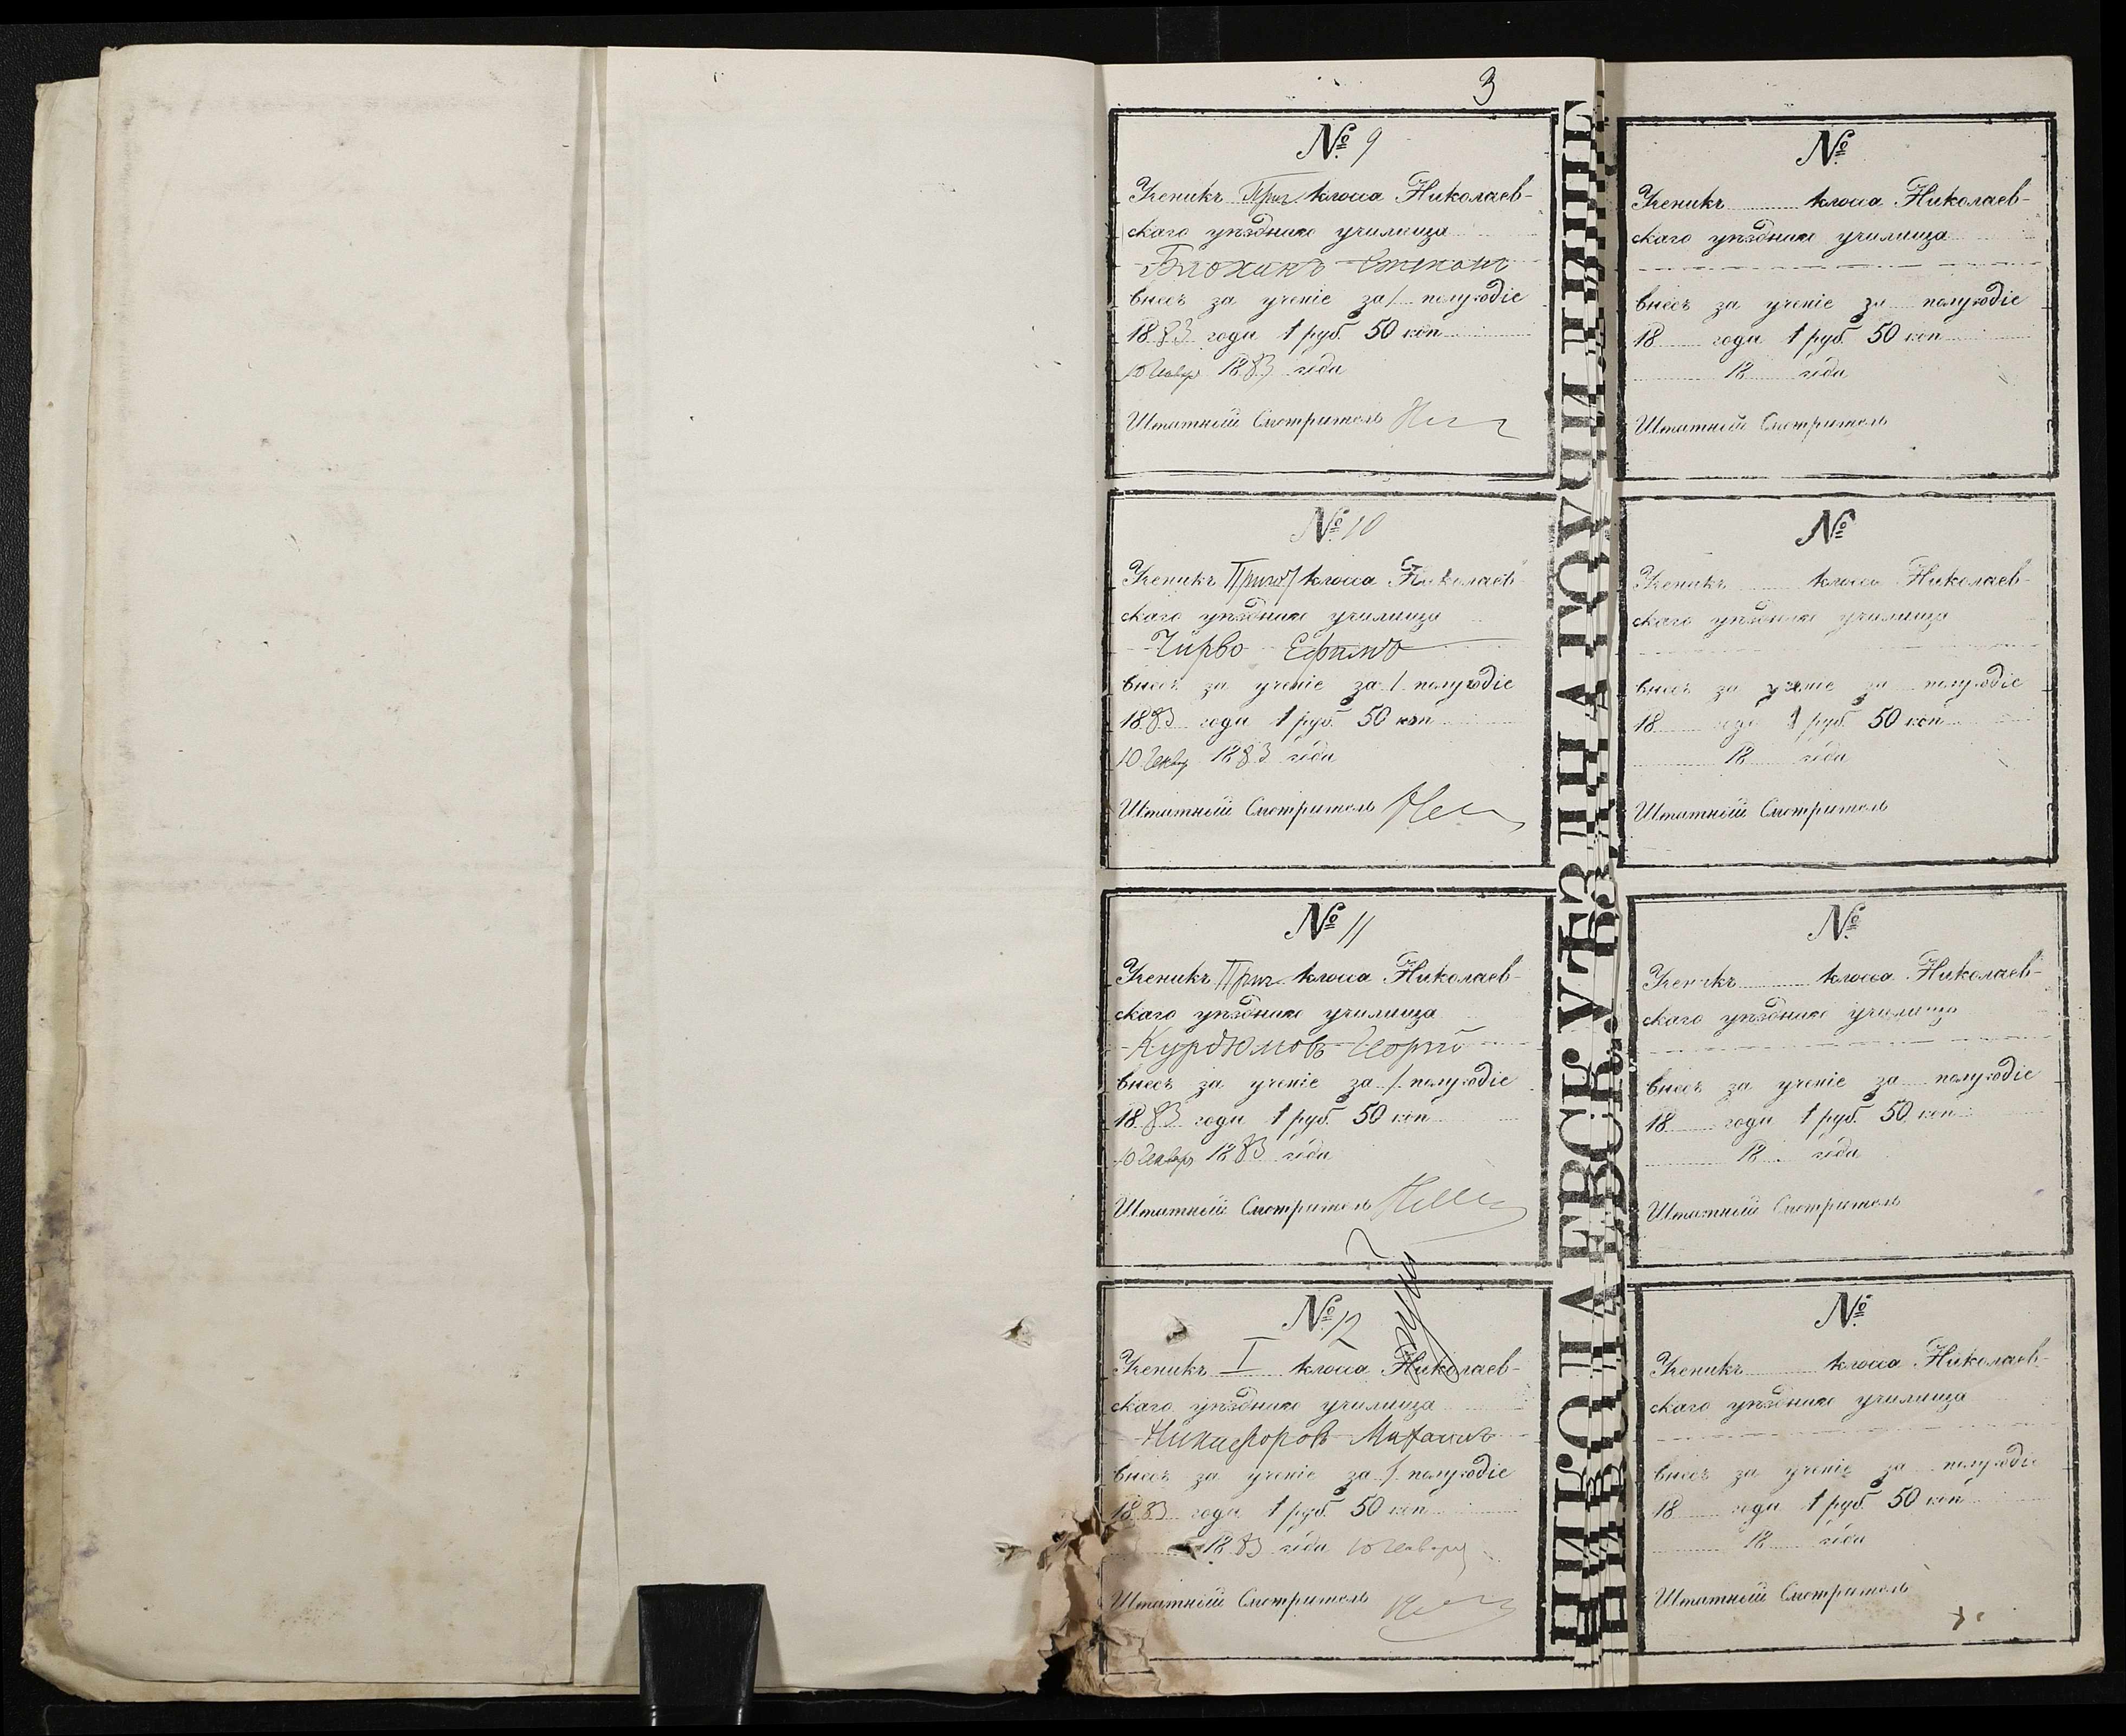 3
№ 9
Ученикъ Приг. класса Николаев-
скаго уѣзднаго училища
Блохинъ Степанъ
внесъ за ученіе за 1 полугодіе
1883 года 1 руб. 50 коп
10 Январ 1883 года
Штатный Смотритель
№ 10
Ученикъ Пригот класса Николаев-
скаго уѣзднаго училища
Чирво Ефимъ
внесъ за ученіе за 1 полугодіе
1883 года 1 руб. 50 коп
10 Январ 1883 года
Штатный Смотритель
№ 11
Ученикъ Приг. класса Николаев-
скаго уѣзднаго училища
Курдюмовъ Георгій
внесъ за ученіе за 1 полугодіе
1883 года 1 руб. 50 коп
10 Январ 1883 года
Штатный Смотритель
№ 12
Ученикъ I класса Николаев-
скаго уѣзднаго училища
Никифоровъ Михаилъ
внесъ за ученіе за 1 полугодіе
1883 года 1 руб. 50 коп
1883 года 10 Января
Штатный Смотритель
НИКОЛАЕВСК. УѢЗДНАГО УЧИЛИЩ
№
Ученикъ класса Николаев-
скаго уѣзднаго училища
внесъ за ученіе за полугодіе
18 года 1 руб. 50 коп
18 года
Штатный Смотритель
№
Ученикъ класса Николаев-
скаго уѣзднаго училища
внесъ за ученіе за полугодіе
18 года 1 руб. 50 коп
18 года
Штатный Смотритель
№
Ученикъ класса Николаев-
скаго уѣзднаго училища
внесъ за ученіе за полугодіе
18 года 1 руб. 50 коп
18 года
Штатный Смотритель
№
Ученикъ класса Николаев-
скаго уѣзднаго училища
внесъ за ученіе за полугодіе
18 года 1 руб. 50 коп
18 года
Штатный Смотритель